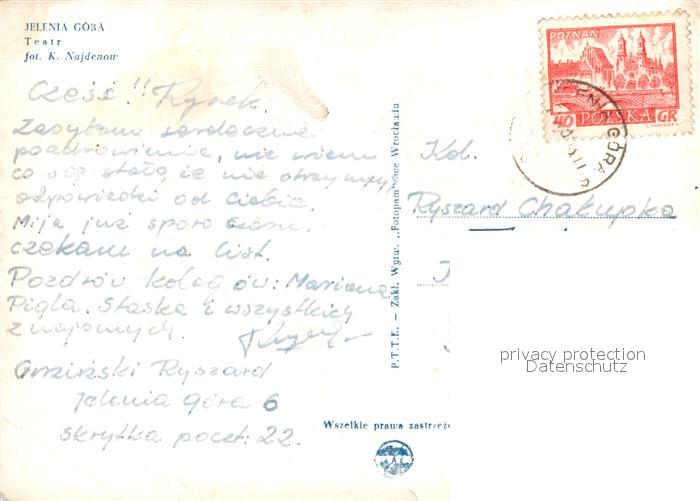 JELENIA GÓRA
Teatr
fot. K. Najdenow
Cześć!! Rysek.
Zasyłam serdeczne
pozdrowienia, nie wiem
co się stało że nie otrzymuję
odpowiedzi od Ciebie.
Mija już sporo czasu.
czekam na list.
Pozdrów kolegów: Mariana
Pigla. Staśka i wszystkich
znajomych.
Ryszard
Jelenia Góra 6
skrytka poczt: 22.
P.T.T.K. — Zakł. Wytw. „Fotopam" we Wrocławiu
Wszelkie prawa zastrzeż
POZNAŃ
40 POLSKA GR
Kol.
Ryszard Chałupka
privacy protection
Datenschutz